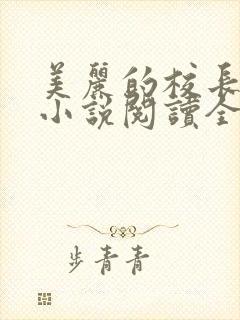 美麗的校長
小説閱讀全
步青青